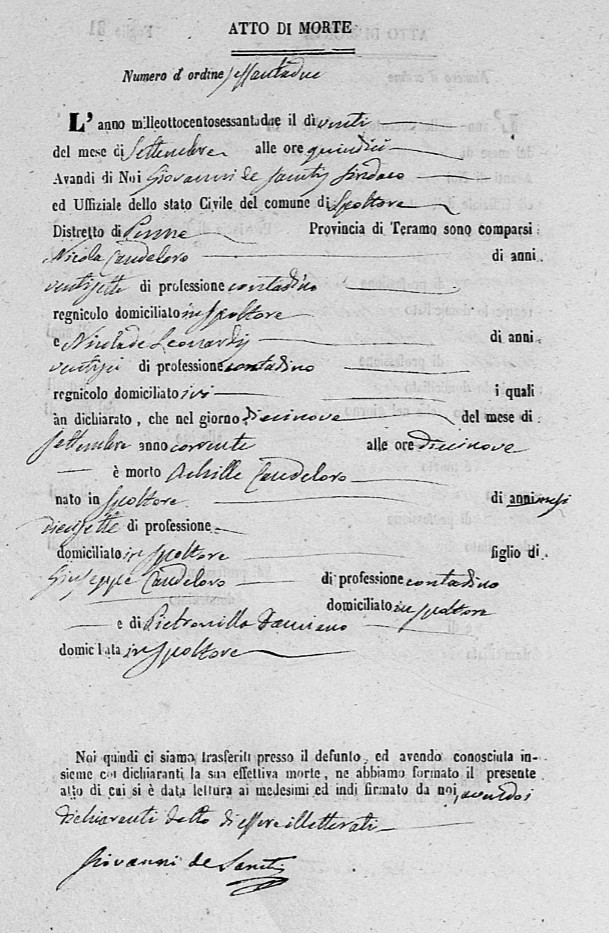 ATTO DI MORTE
Numero d'ordine sessantadue
L'anno milleottocentosessantadue il dì venti
del mese di Settembre alle ore quindici
Avandi di Noi Giovanni de Santis Sindaco
ed Uffiziale dello stato Civile del comune di Spoltore
Distretto di Penne Provincia di Teramo sono comparsi
Nicola Candeloro di anni
ventisette di professione contadino
regnicolo domiciliato in Spoltore
e Nicola de Leonardis di anni
ventisei di professione contadino
regnicolo domiciliato ivi i quali
àn dichiarato, che nel giorno Diecinove del mese di
Settembre anno corrente alle ore diecinove
è morto Achille Candeloro
nato in Spoltore di anni mesi
diecisette di professione
domiciliato in Spoltore figlio di
Giuseppe Candeloro di professione contadino
domiciliato in Spoltore
e di Pietronilla Damiano
domiciliata in Spoltore
Noi quindi ci siamo trasferiti presso il defunto, ed avendo conosciuta in-
sieme coi dichiaranti la sua effettiva morte, ne abbiamo formato il presente
atto di cui si è data lettura ai medesimi ed indi firmato da noi, avendo i
dichiaranti detto di essere illetterati
Giovanni de Santis